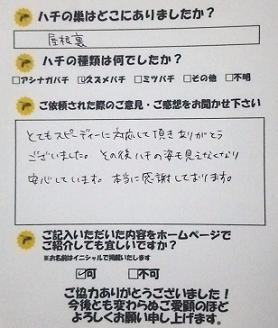 ハチの巣はどこにありましたか?
屋根裏
ハチの種類は何でしたか?
□アシナガバチ ☑スズメバチ □ミツバチ □その他 □不明
ご依頼された際のご意見・ご感想をお聞かせ下さい
とてもスピーディーに対応して頂きありがとう
ございました。その後ハチの姿も見えなくなり
安心しています。本当に感謝しております。
ご記入いただいた内容をホームページで
ご紹介しても宜しいですか?
※お名前はイニシャルで掲載いたします
☑可 □不可
ご協力ありがとうございました!
今後とも変わらぬご愛顧のほど
よろしくお願い申し上げます。